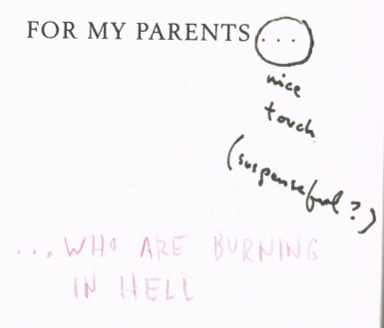 FOR MY PARENTS...
nice
touch
(suspenseful?)
...WHO ARE BURNING
IN HELL